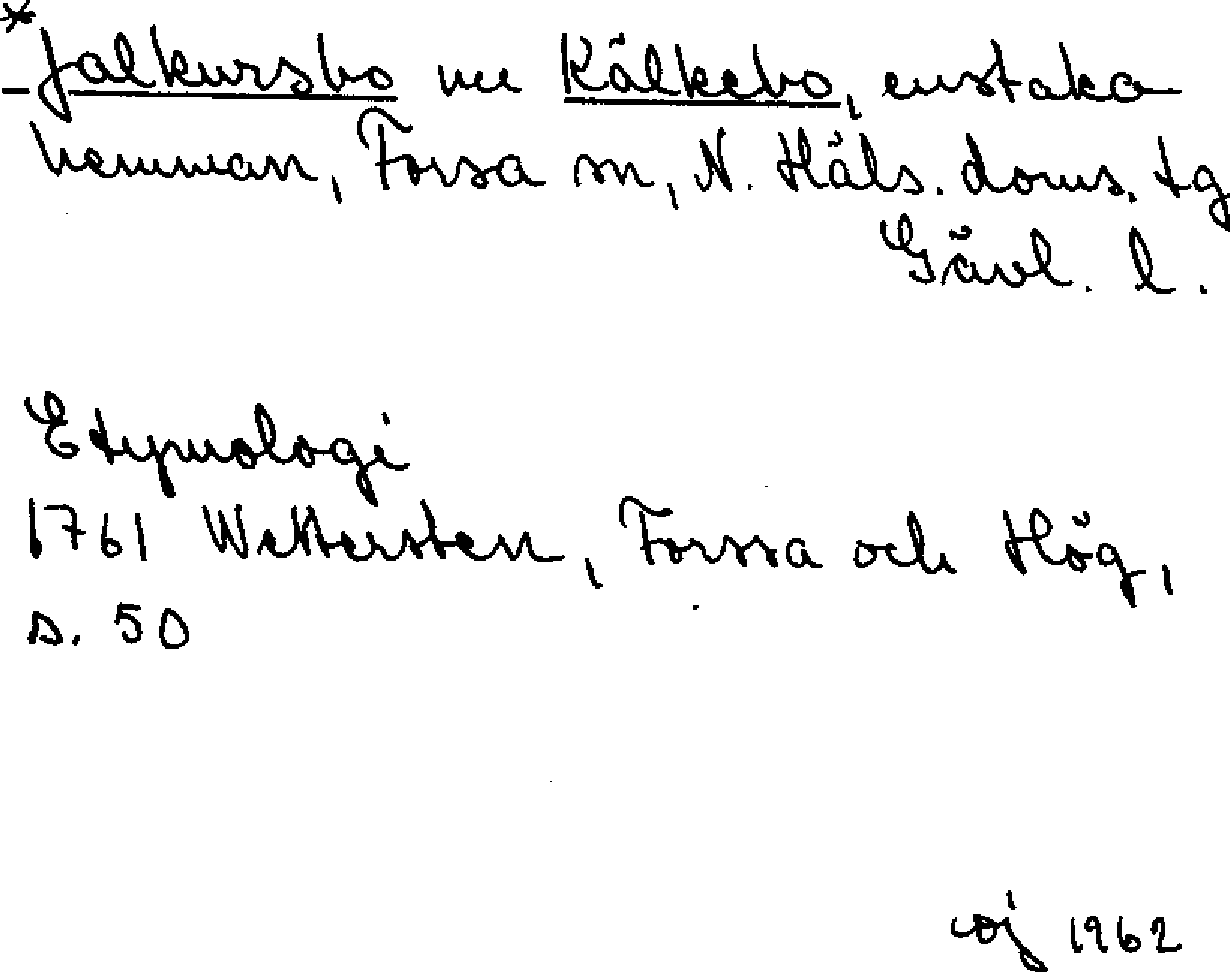 * Jalkursbo nu Kälkebo, enstaka
hemman, Forsa sn, N. Häls. doms. tg
Gävl. l.
Etymologi
1761 Wettersten, Forssa och Hög,
s. 50
1962